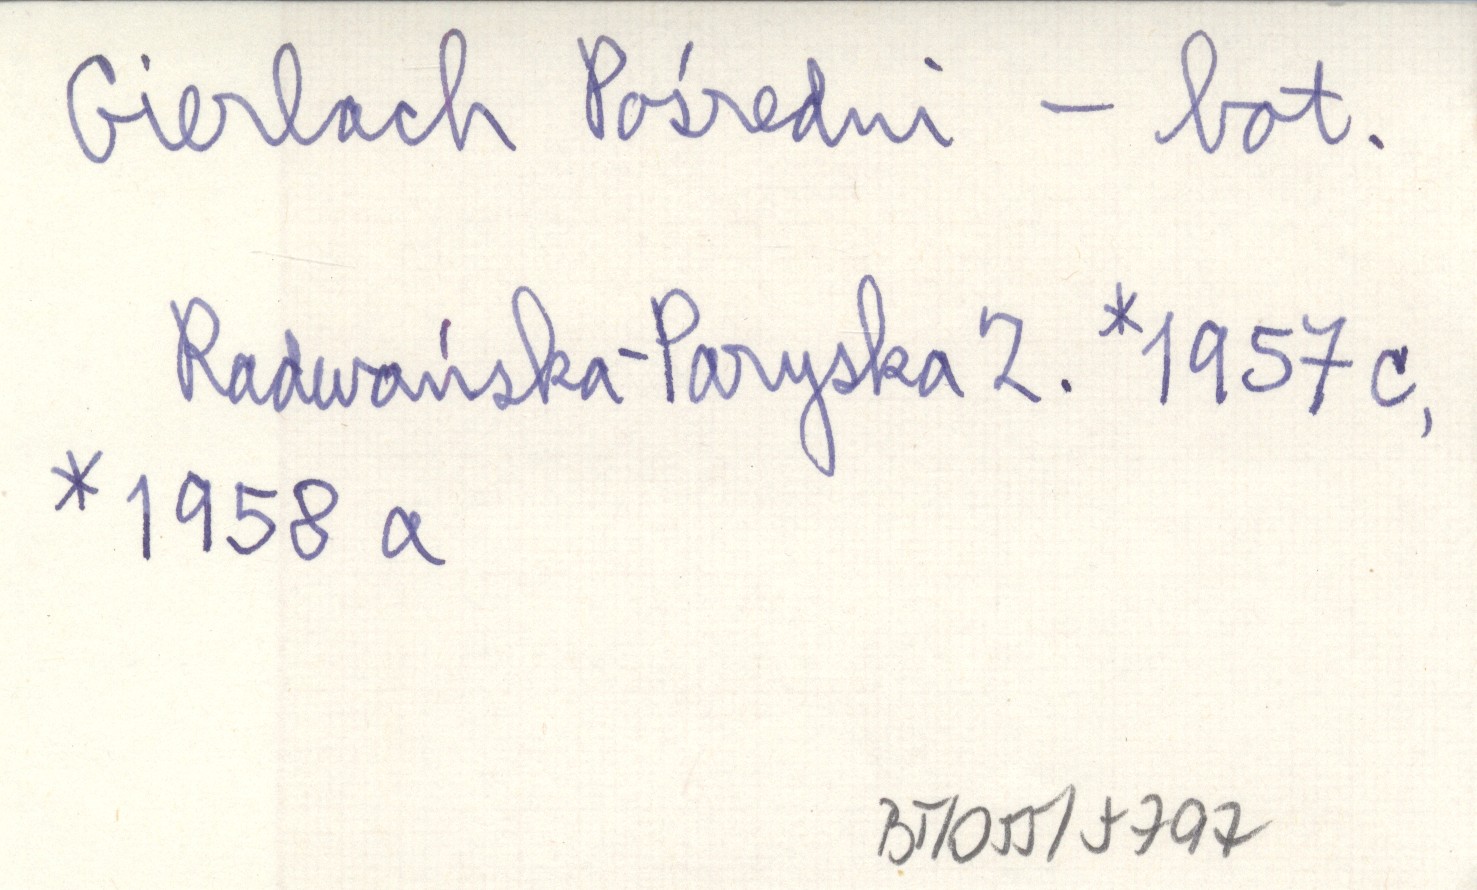 Gierlach Pośredni – bot.
Radwańska-Paryska Z. *1957c,
*1958 a
BT/055/5797